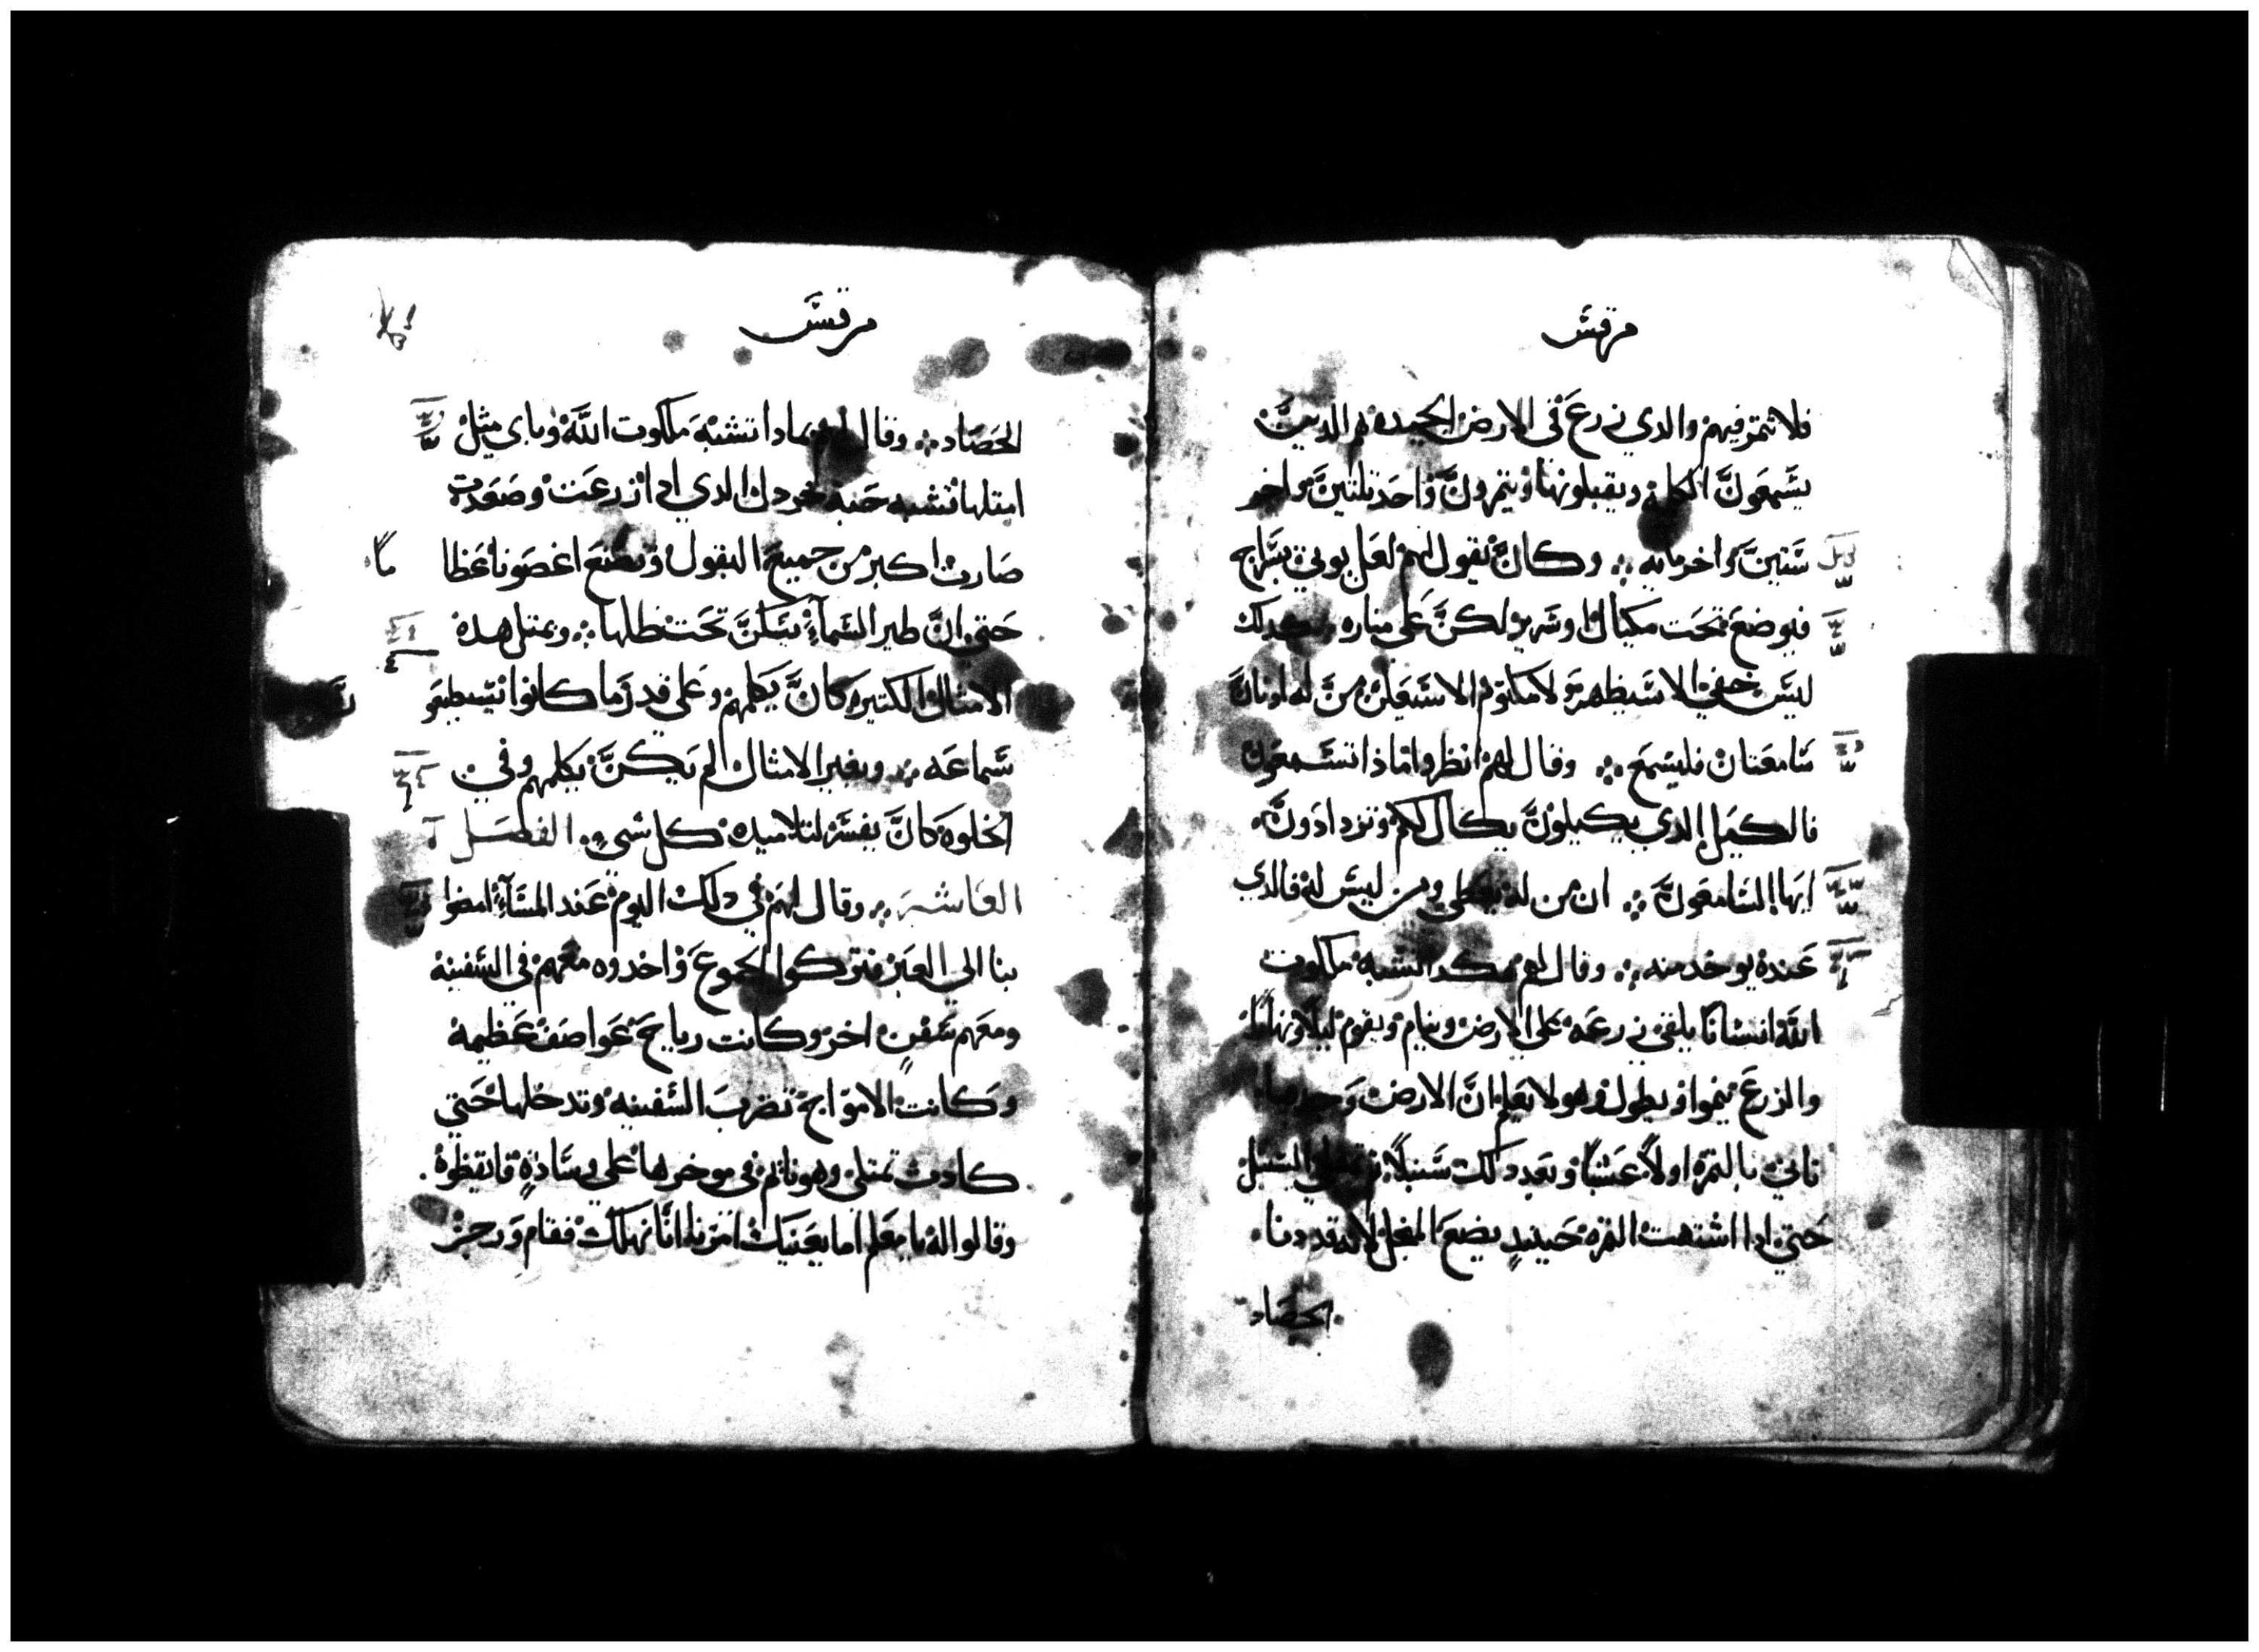 مرقس
فلا تثمر فيهم والدي زرع في الارض الجيده هم الدين
يسمعون الكلمة ويقبلونها ويثمرون واحد تلتين واخر
ستين واخر مايه ؞ وكان يقول لهم لعل يوتي بسراج
فيوضع تحت مكيال او سرير لكن على مناره وكدلك
ليس خفي الا سيظهر ولا مكتوم الا سيعلن من له ادنان
سامعتان فليسمع ؞ وقال لهم انظروا ماذا تسمعون
فالكيل الدي يكيلون يكال لكم وتزدادون
ايها السامعون ؞ ان من له يعطي ومن ليس له فالدي
عنده يوخد منه ؞ وقال لهم هكدا تشبه ملكوت
الله انسانا يلقي زرعه على الارض وينام ويقوم ليلا ونهارا
والزرع ينموا ويطول وهو لا يعلم ان الارض وحدها
تاتي بالثمره اولا عشبا وبعد دلك سنبلا ثم السنبل
حتي ادا اشتهت الثمره حينيد يضع المنجل لانه قد دنا
الحصاد
مرقس
الحصاد ؞ وقال بمادا تشبه ملكوت الله وباي مثل
امتلها تشبه حبة خردل الدي ادا زرعت وصعدت
صارت اكبر من جميع البقول وتصنع اغصونا عظا
ما
حتي ان طير السماء يسكن تحت ظلها ؞ وبمثل هده
الامثال الكتيره كان يكلمهم وعلى قدر ما كانوا يستطيعو
ن
سماعه ؞ وبغير الامثال لم يكن يكلمهم وفي
الخلوه كان يفسر لتلاميده كل شي ؞ الفصل
العاشر ؞ وقال لهم في دلك اليوم عند المساء امضوا
بنا الي العبر فتركوا الجموع واخدوه معهم في السفينه
ومعهم سفن اخر وكانت رياح عواصف عظيمه
وكانت الامواج تضرب السفينه وتدخلها حتي
كادت تمتلي وهو نايم في موخرها على وسادة فايقظوه
وقالوا له يا معلم اما يعنيك امرنا انا نهلك فقام وزجر